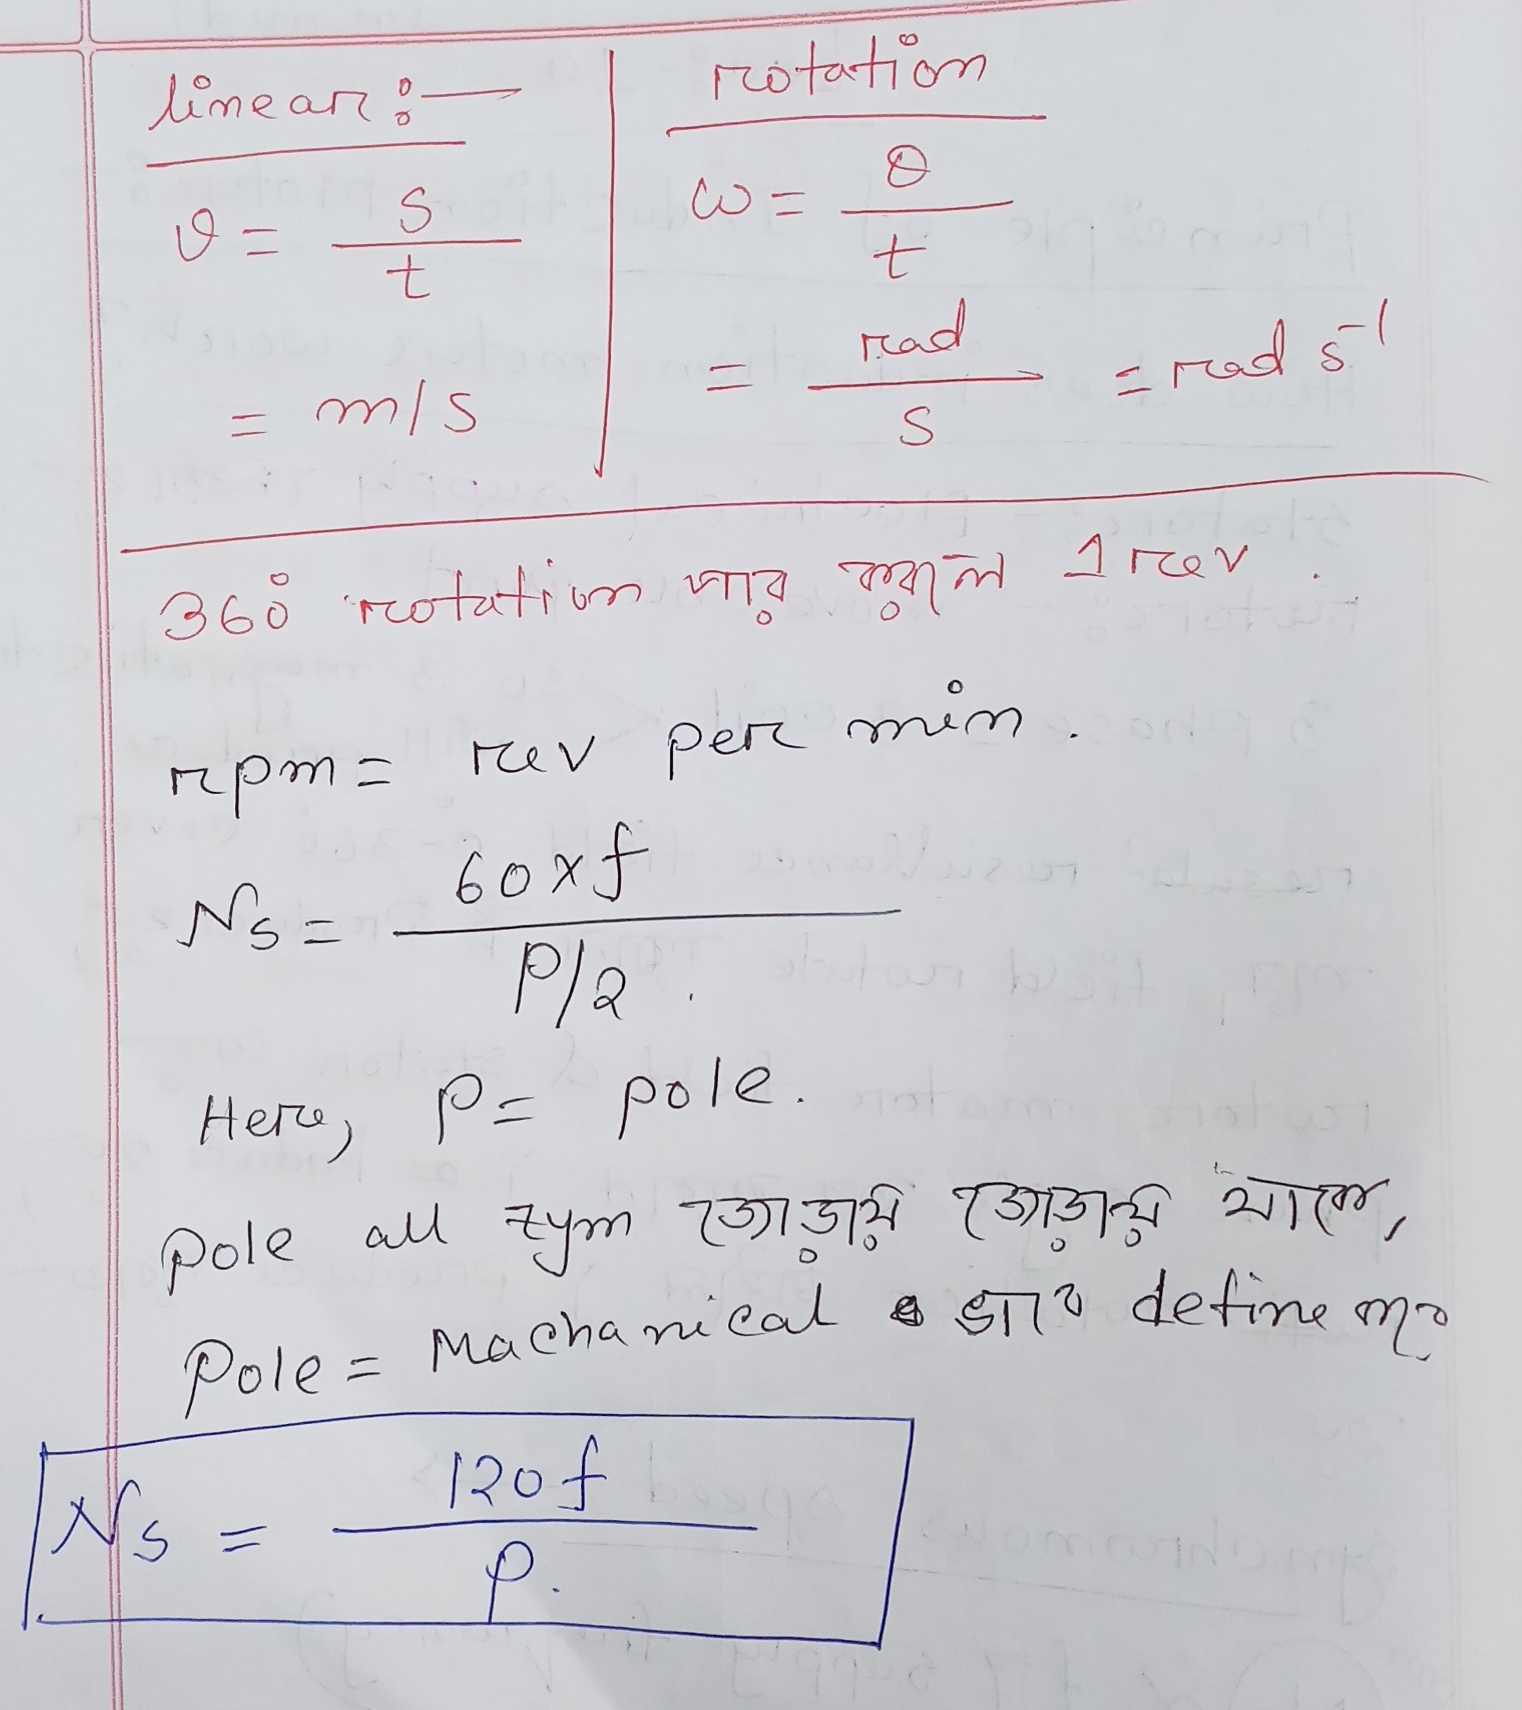 linear :—
v = s / t
= m/s
rotation
ω = θ / t
= rad / s = rad s⁻¹
360° rotation পার করলে 1 rev.
rpm = rev per min.
Ns = 60 x f / P/2.
Here, P = pole.
pole all tym জোড়ায় জোড়ায় থাকে,
Pole = Machanical ভাবে define
Ns = 120f / P.